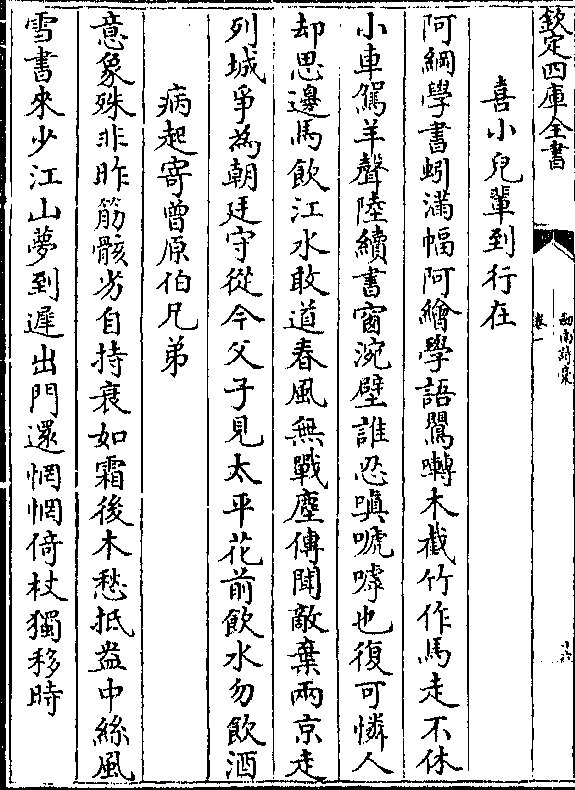 欽定四庫全書
劒南詩稾
卷一
十六
喜小兒輩到行在
阿綱學書蚓滿幅阿繪學語鸎囀木截竹作馬走不休
小車駕羊聲陸續書窗涴壁誰忍嗔啼嘑也復可憐人
却思邊馬飲江水敢道春風無戰塵傳聞敵棄兩京走
列城爭為朝廷守從今父子見太平花前飲水勿飲酒
病起寄曾原伯兄弟
意象殊非昨筋骸劣自持衰如霜後木愁抵䀋中絲風
雪書來少江山夢到遲出門還惘惘倚杖獨移時